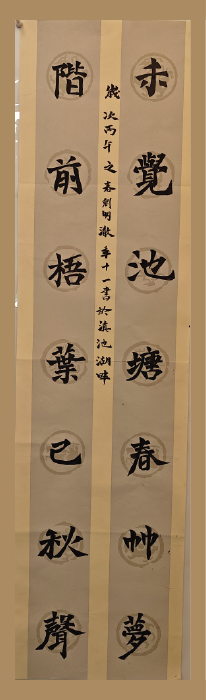 未覺池塘春艸夢
階前梧葉已秋聲
歲次丙午之春劉明澈年十一書於滇池湖畔